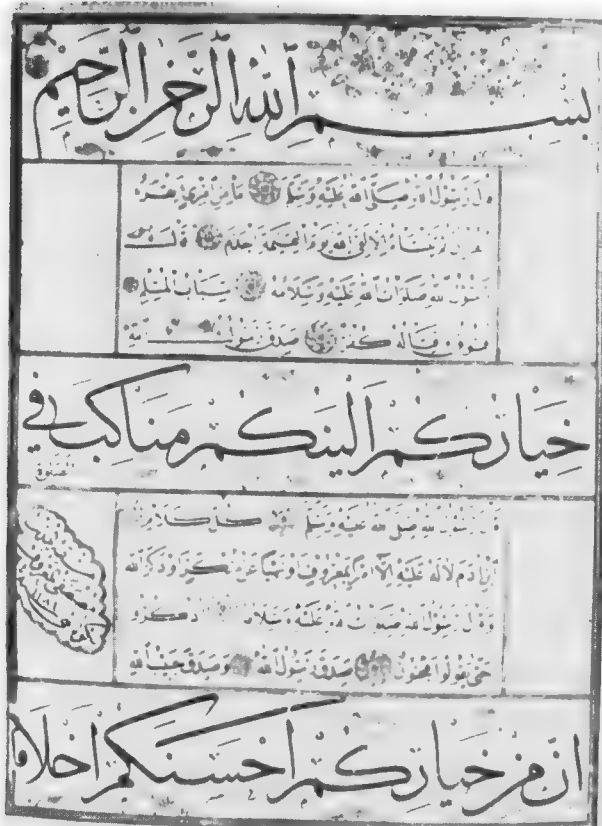 بسم الله الرحمن الرحيم
قال رسول الله صلى الله عليه وسلم ما من امرئ
الا لقى الله يوم القيمة اجذم
رسول الله صلوات الله عليه وسلامه سباب المسلم
فسوق وقتاله كفر صدق رسول الله
خياركم الينكم مناكب في
الصلوة
قال رسول الله صلى الله عليه وسلم كل كلام
ابن ادم لا له عليه الا امر بمعروف او نهيا عن منكر وذكر الله
وقال رسول الله صلوات الله عليه وسلامه
حتى يقولوا مجنون صدق رسول الله وصدق حبيب الله
ان من خياركم احسنكم اخلاقا